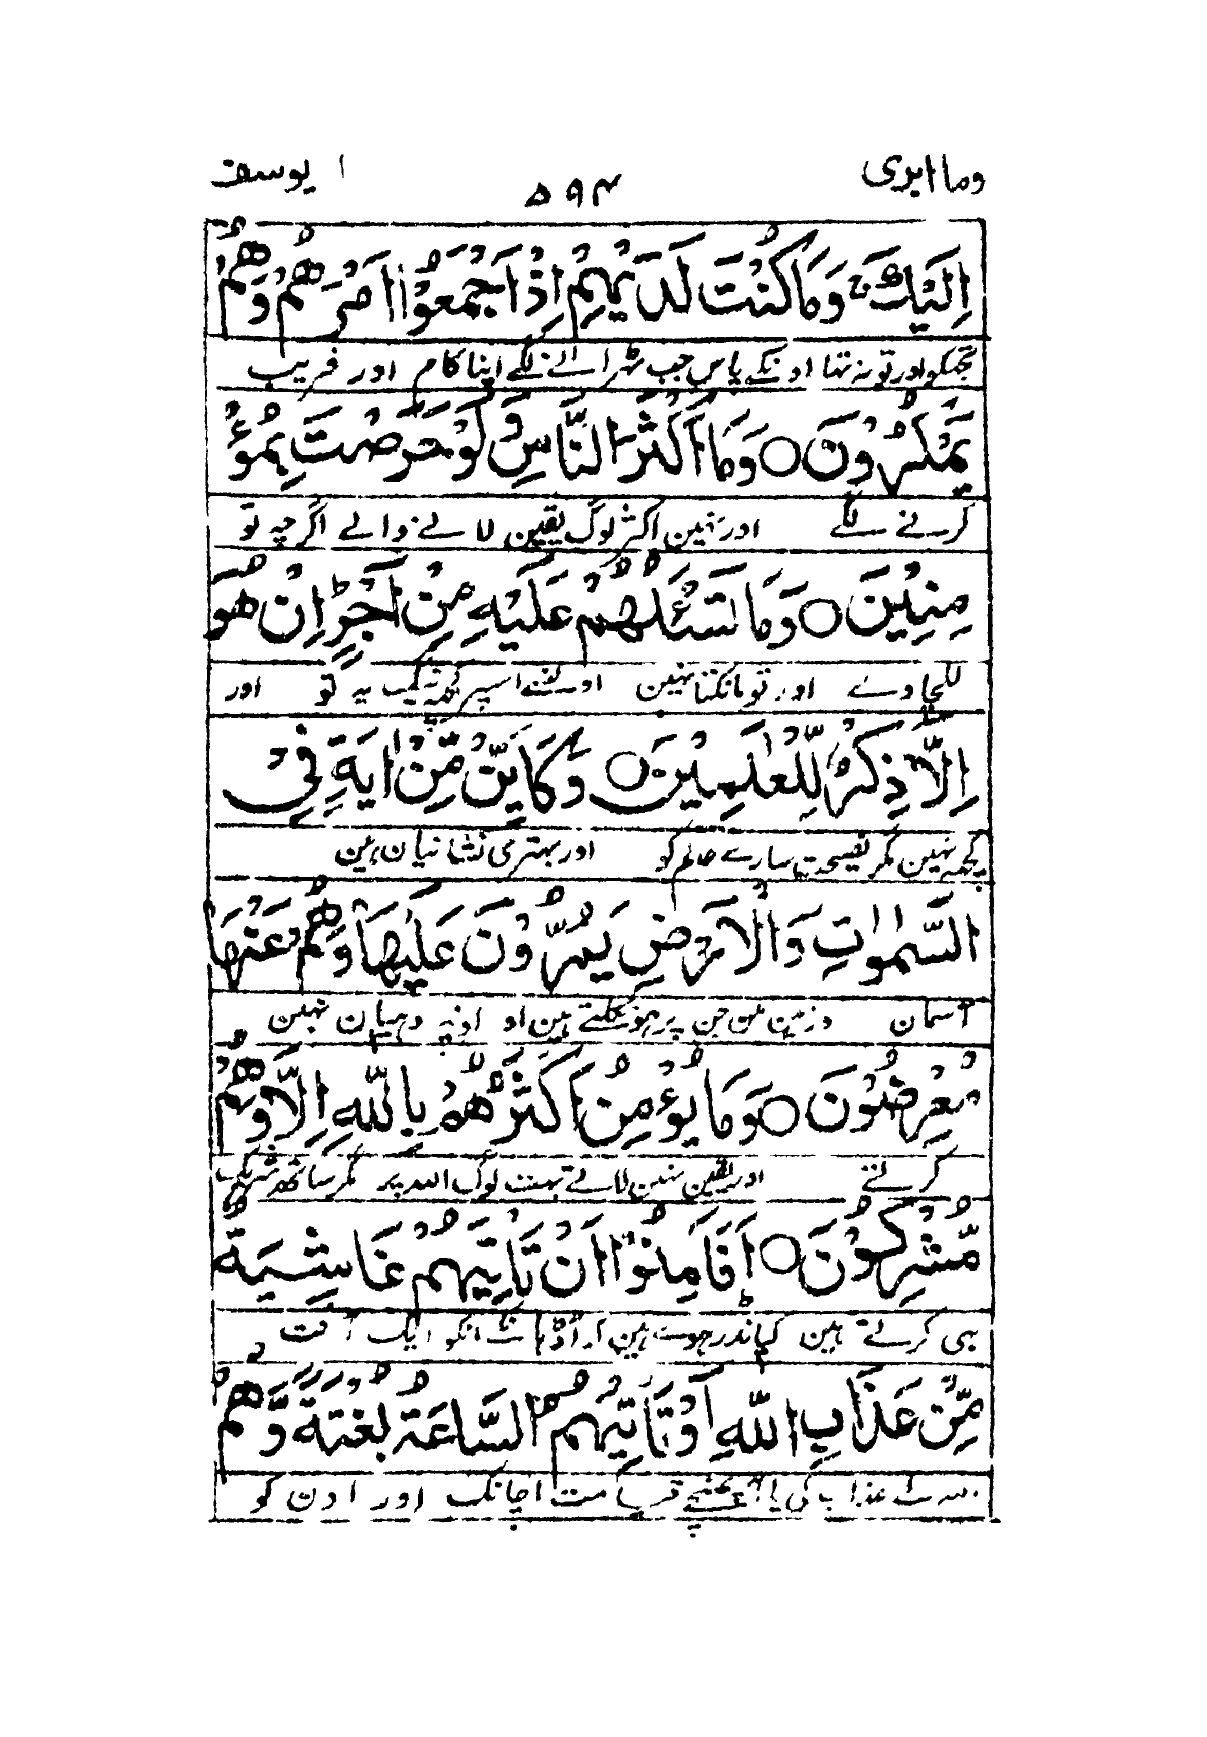 وما ابری ۵۹۴ ا یوسف
اِلَیْكَ ۚ وَمَا كُنْتَ لَدَیْهِمْ اِذْ اَجْمَعُوْۤا اَمْرَهُمْ وَهُمْ
تجھکو اور تو نہ تھا اونکے پاس جب ٹھرانے لگے اپنا کام اور فریب
یَمْكُرُوْنَ ○ وَمَاۤ اَكْثَرُ النَّاسِ لَوْ حَرَصْتَ بِمُؤْ
کرنے لگے اور نہین اکثر لوگ یقین لانے والے اگرچہ تو
مِنِیْنَ ○ وَمَا تَسْـَٔلُهُمْ عَلَیْهِ مِنْ اَجْرٍ ؕ اِنْ هُوَ
للچاوے اور تو مانگتا نہین اونسے اسپر کچھ نیگ یہ تو اور
اِلَّا ذِكْرٌ لِّلْعٰلَمِیْنَ ○ وَكَاَیِّنْ مِّنْ اٰیَةٍ فِیْ
کچھ نہین مگر نصیحت سارے عالم کو اور بہتری نشانیان ہین
السَّمٰوٰتِ وَالْاَرْضِ یَمُرُّوْنَ عَلَیْهَا وَهُمْ عَنْهَا
آسمان و زمین مین جن پر ہو نکلتے ہین او اونپہ دھیان نہین
مُعْرِضُوْنَ ○ وَمَا یُؤْمِنُ اَكْثَرُهُمْ بِاللّٰهِ اِلَّا وَهُمْ
کرتے اور یقین نہین لاتے بہت لوگ اللہ پر مگر ساتھ شریک
مُّشْرِكُوْنَ ○ اَفَاَمِنُوْۤا اَنْ تَاْتِیَهُمْ غَاشِیَةٌ
بھی کرتے ہین کیا نڈر ہوے ہین کہ آڈھانکے انکو ایک آفت
مِّنْ عَذَابِ اللّٰهِ اَوْ تَاْتِیَهُمُ السَّاعَةُ بَغْتَةً وَّهُمْ
عذاب کی یا آ پہنچے قیامت اچانک اور اون کو